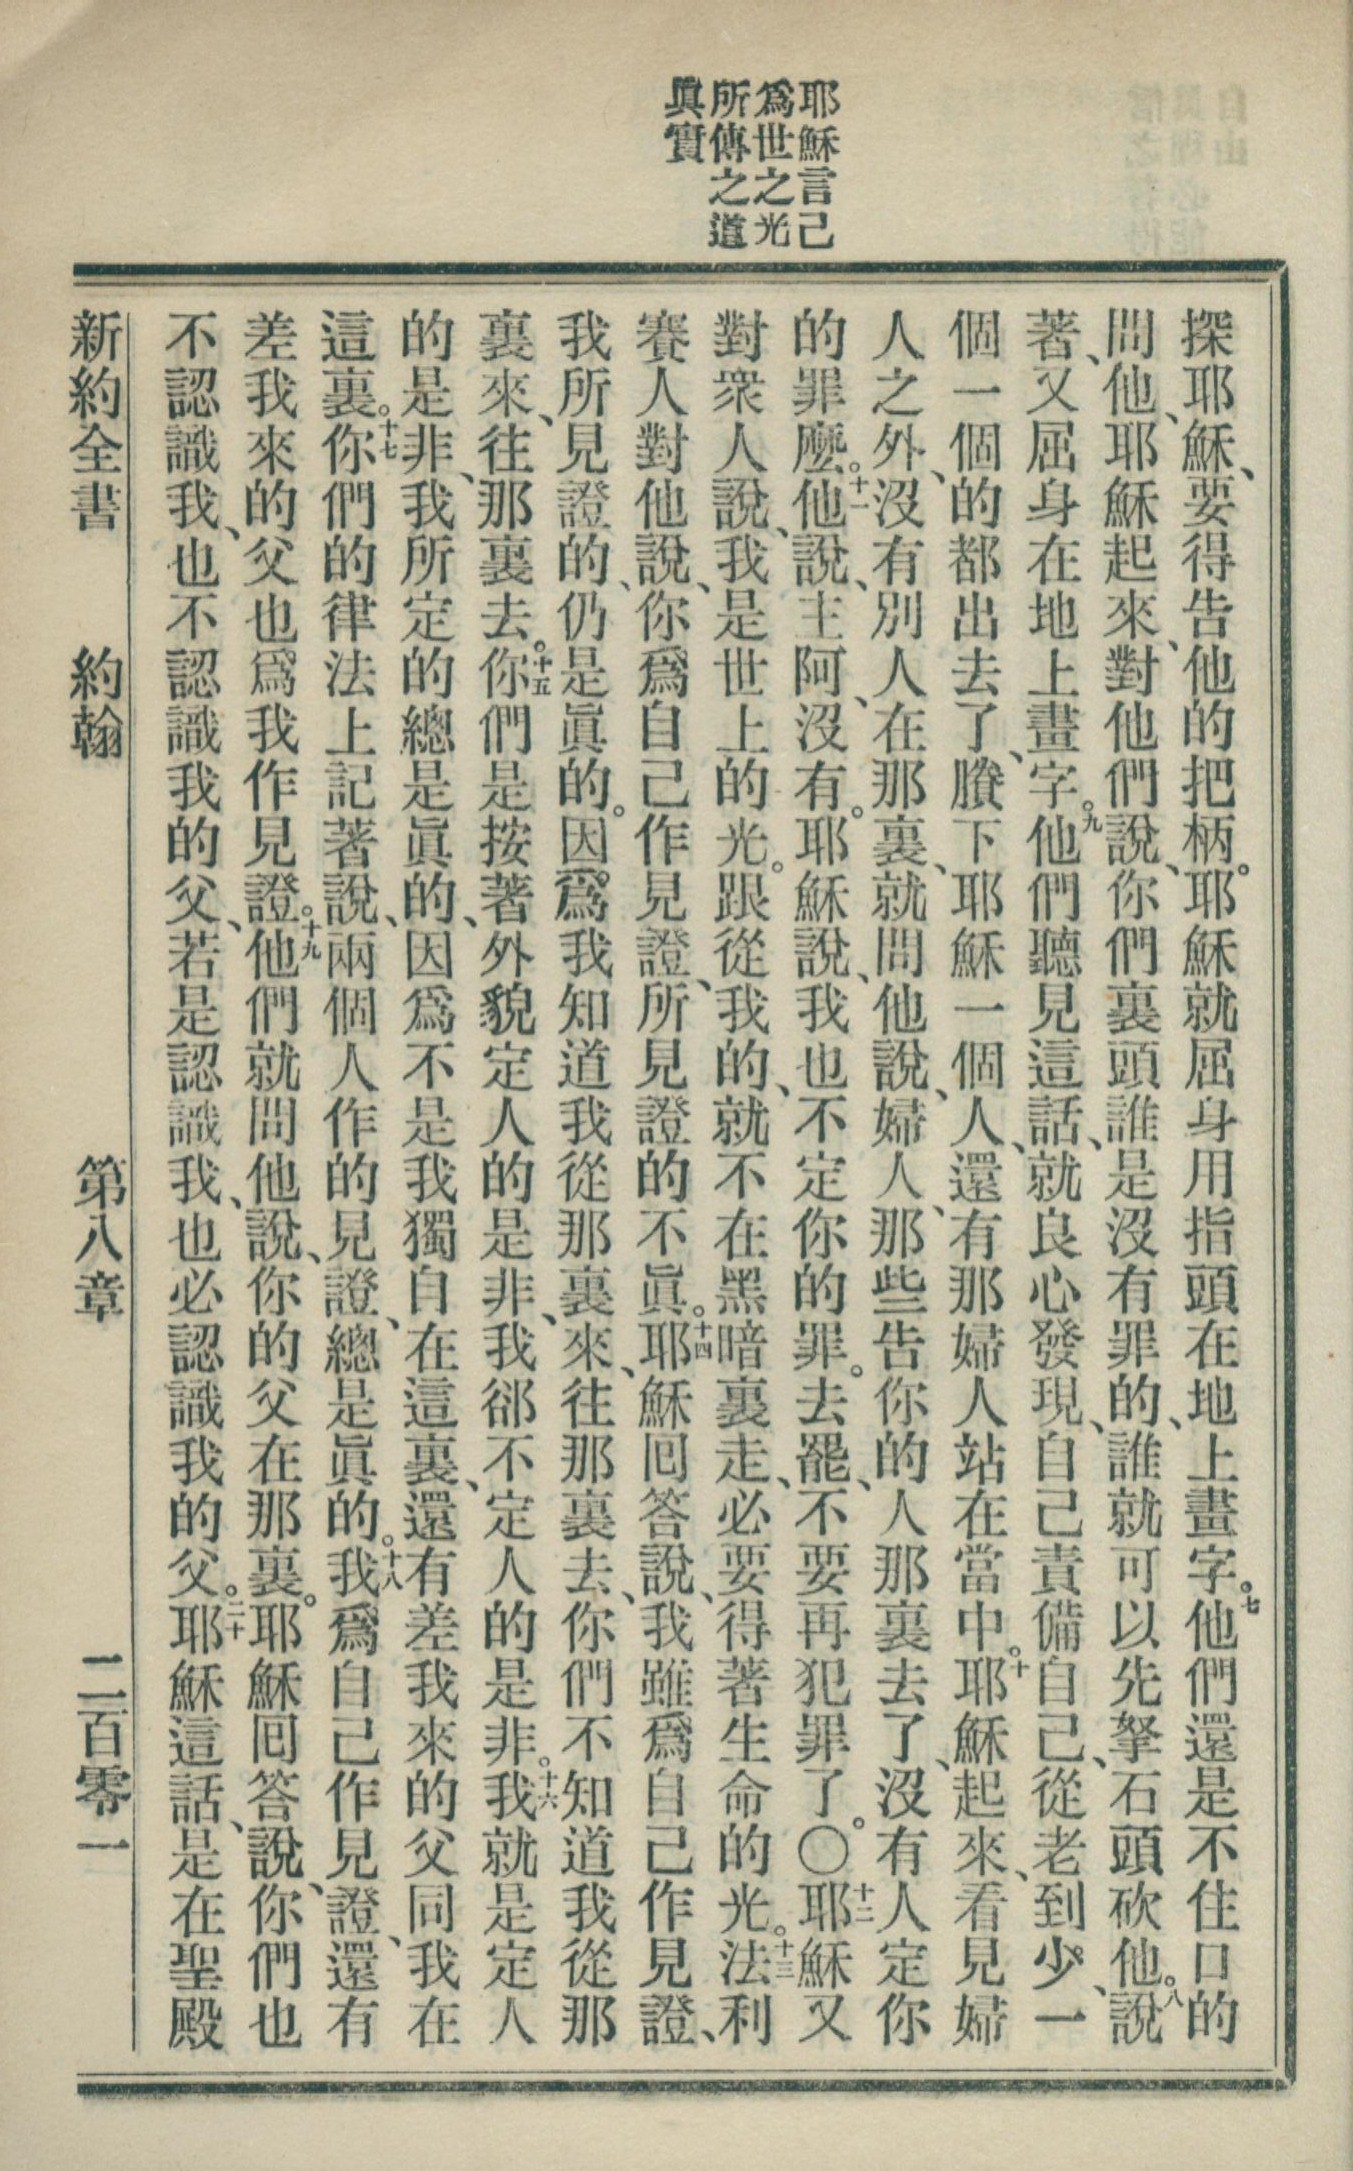 耶穌言己
爲世之光
所傳之道
眞實
探耶穌、要得告他的把柄。耶穌就屈身用指頭在地上畫字。七他們還是不住口的
問他、耶穌起來、對他們說、你們裏頭誰是沒有罪的、誰就可以先拏石頭砍他。八說
著、又屈身在地上畫字。九他們聽見這話、就良心發現、自己責備自己、從老到少、一
個一個的都出去了、賸下耶穌一個人、還有那婦人站在當中。十耶穌起來、看見婦
人之外、沒有別人在那裏、就問他說、婦人、那些告你的人那裏去了、沒有人定你
的罪麼。十一他說、主阿、沒有。耶穌說、我也不定你的罪。去罷、不要再犯罪了。〇十二耶穌又
對衆人說、我是世上的光。跟從我的、就不在黑暗裏走、必要得著生命的光。十三法利
賽人對他說、你爲自己作見證、所見證的不眞。十四耶穌囘答說、我雖爲自己作見證、
我所見證的、仍是眞的。因爲我知道我從那裏來、往那裏去、你們不知道我從那
裏來、往那裏去。十五你們是按著外貌定人的是非、我郤不定人的是非。十六我就是定人
的是非、我所定的總是眞的、因爲不是我獨自在這裏、還有差我來的父同我在
這裏。十七你們的律法上記著說、兩個人作的見證、總是眞的。十八我爲自己作見證、還有
差我來的父也爲我作見證。十九他們就問他說、你的父在那裏。耶穌囘答說、你們也
不認識我、也不認識我的父、若是認識我、也必認識我的父。二十耶穌這話、是在聖殿
新約全書 約翰 第八章 二百零一